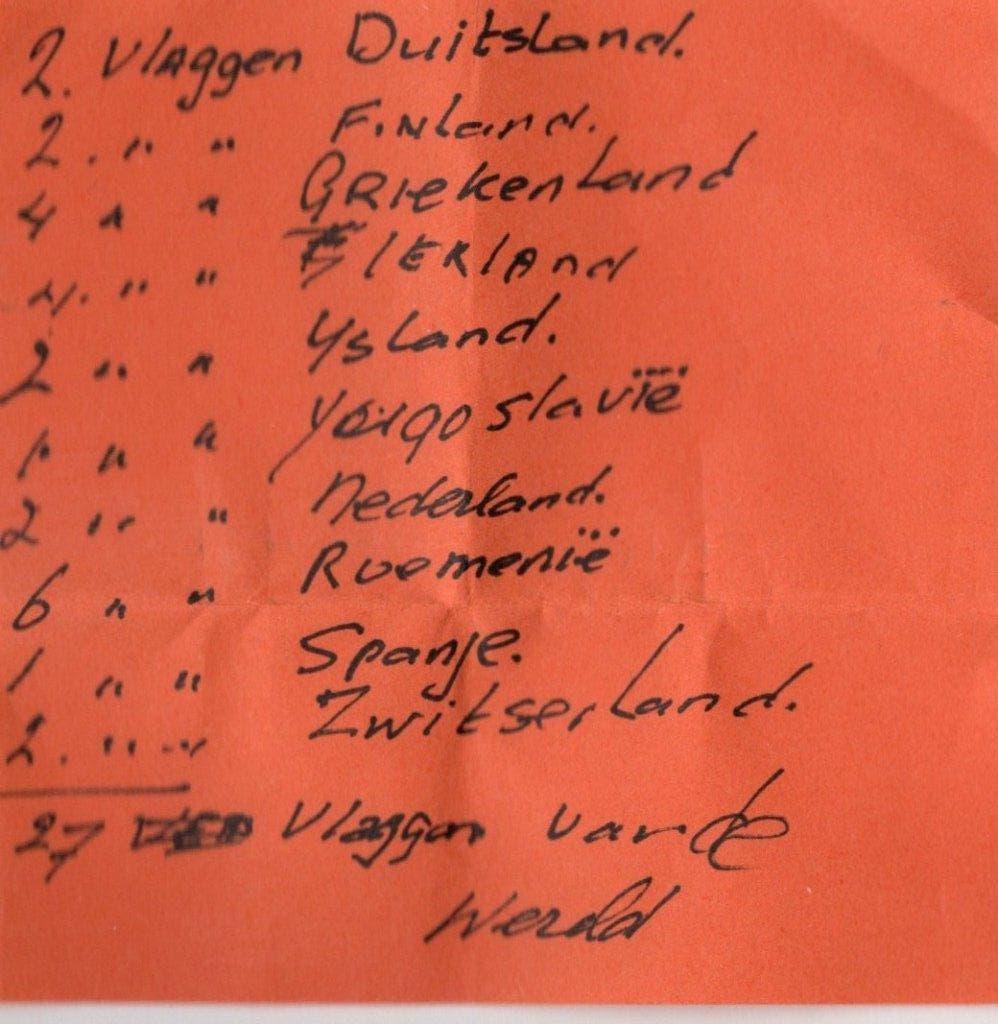 2. Vlaggen Duitsland.
2. " " Finland.
4 " " Griekenland
4. " " IERLAnd
2 " " Ysland.
1 " " Yougoslavië
2 " " Nederland.
6 " " Roemenië
1 " " Spanje.
2. " " Zwitserland.
27 Vlaggen van de
Wereld